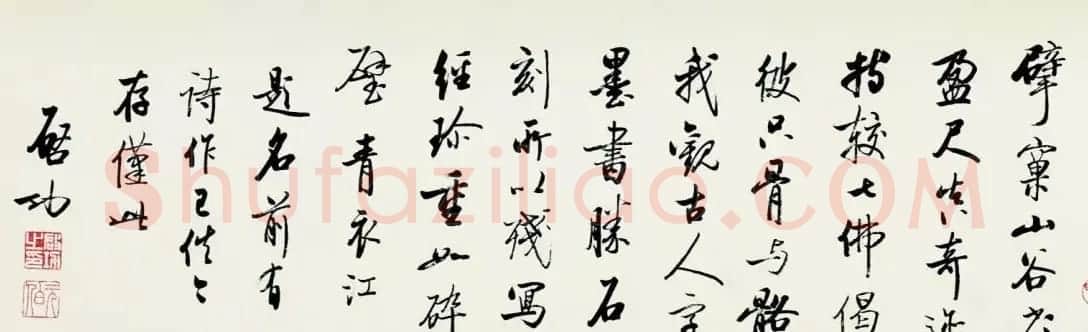 擘窠山谷书
盈尺真奇迹
持較七佛偈
彼只骨与骼
我觀古人字
墨書勝石
刻所以殘寫
經珍重如碎
璧 青衣江
題名前有
詩作已佚今
存僅此
啟功
Shufaziliao.COM